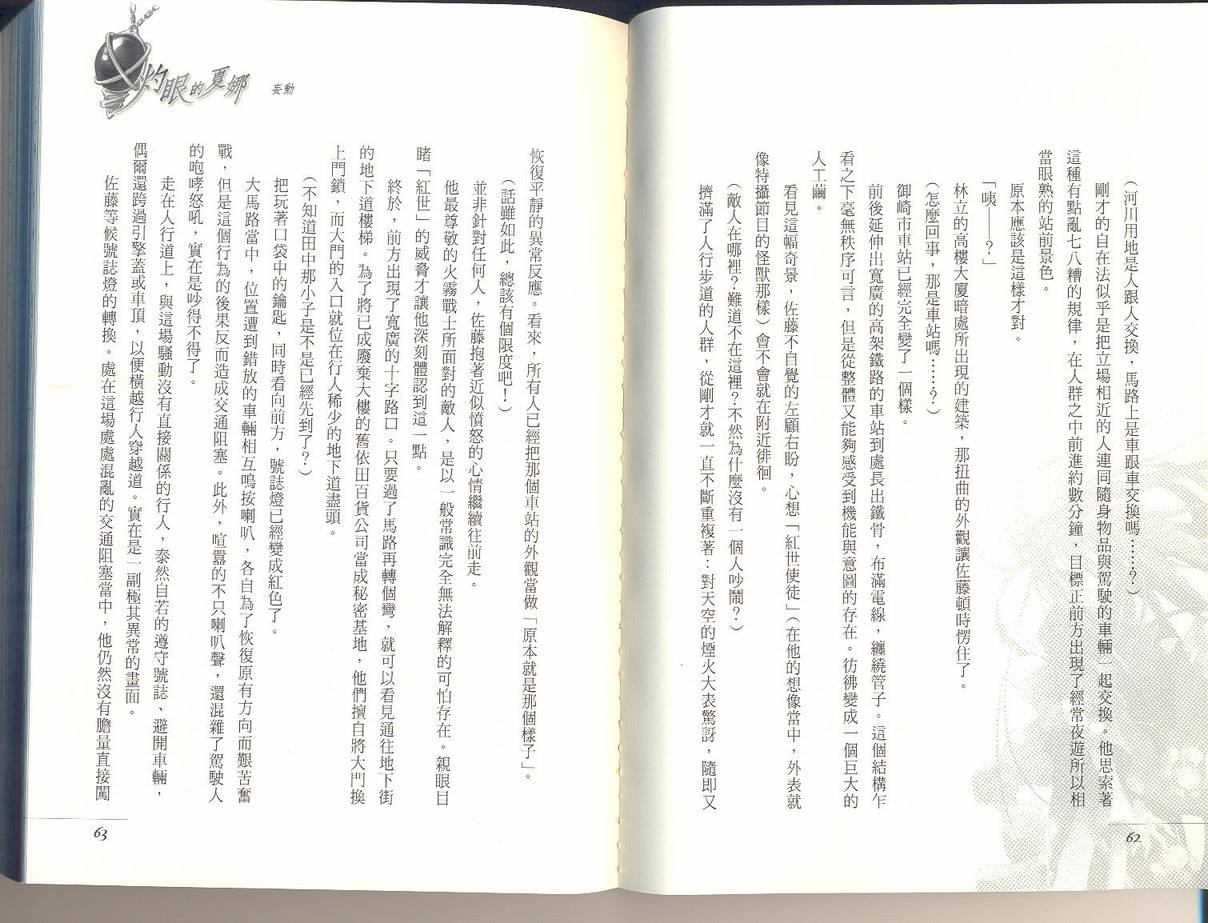 (河川用地是人跟人交換,馬路上是車跟車交換嗎……?)
剛才的自在法似乎是把立場相近的人連同隨身物品與駕駛的車輛一起交換。他思索著
這種有點亂七八糟的規律,在人群之中前進約數分鐘,目標正前方出現了經常夜遊所以相
當眼熟的站前景色。
原本應該是這樣才對。
「咦——?」
林立的高樓大廈暗處所出現的建築,那扭曲的外觀讓佐藤頓時愣住了。
(怎麼回事,那是車站嗎……?)
御崎市車站已經完全變了一個樣。
前後延伸出寬廣的高架鐵路的車站到處長出鐵骨,布滿電線,纏繞管子。這個結構乍
看之下毫無秩序可言,但是從整體又能夠感受到機能與意圖的存在。彷彿變成一個巨大的
人工繭。
看見這幅奇景,佐藤不自覺的左顧右盼,心想「紅世使徒」(在他的想像當中,外表就
像特攝節目的怪獸那樣)會不會就在附近徘徊。
(敵人在哪裡?難道不在這裡?不然為什麼沒有一個人吵鬧?)
擠滿了人行步道的人群,從剛才就一直不斷重複著:對天空的煙火大表驚訝,隨即又
62
灼眼的夏娜 妄動
恢復平靜的異常反應。看來,所有人已經把那個車站的外觀當做「原本就是那個樣子」。
(話雖如此,總該有個限度吧!)
並非針對任何人,佐藤抱著近似憤怒的心情繼續往前走。
他最尊敬的火霧戰士所面對的敵人,是以一般常識完全無法解釋的可怕存在。親眼目
睹「紅世」的威脅才讓他深刻體認到這一點。
終於,前方出現了寬廣的十字路口。只要過了馬路再轉個彎,就可以看見通往地下街
的地下道樓梯。為了將已成廢棄大樓的舊依田百貨公司當成秘密基地,他們擅自將大門換
上門鎖,而大門的入口就位在行人稀少的地下道盡頭。
(不知道田中那小子是不是已經先到了?)
把玩著口袋中的鑰匙,同時看向前方,號誌燈已經變成紅色了。
大馬路當中,位置遭到錯放的車輛相互鳴按喇叭,各自為了恢復原有方向而艱苦奮
戰,但是這個行為的後果反而造成交通阻塞。此外,喧囂的不只喇叭聲,還混雜了駕駛人
的咆哮怒吼,實在是吵得不得了。
走在人行道上,與這場騷動沒有直接關係的行人,泰然自若的遵守號誌、避開車輛,
偶爾還跨過引擎蓋或車頂,以便橫越行人穿越道。實在是一副極其異常的畫面。
佐藤等候號誌燈的轉換。處在這場處處混亂的交通阻塞當中,他仍然沒有膽量直接闖
63